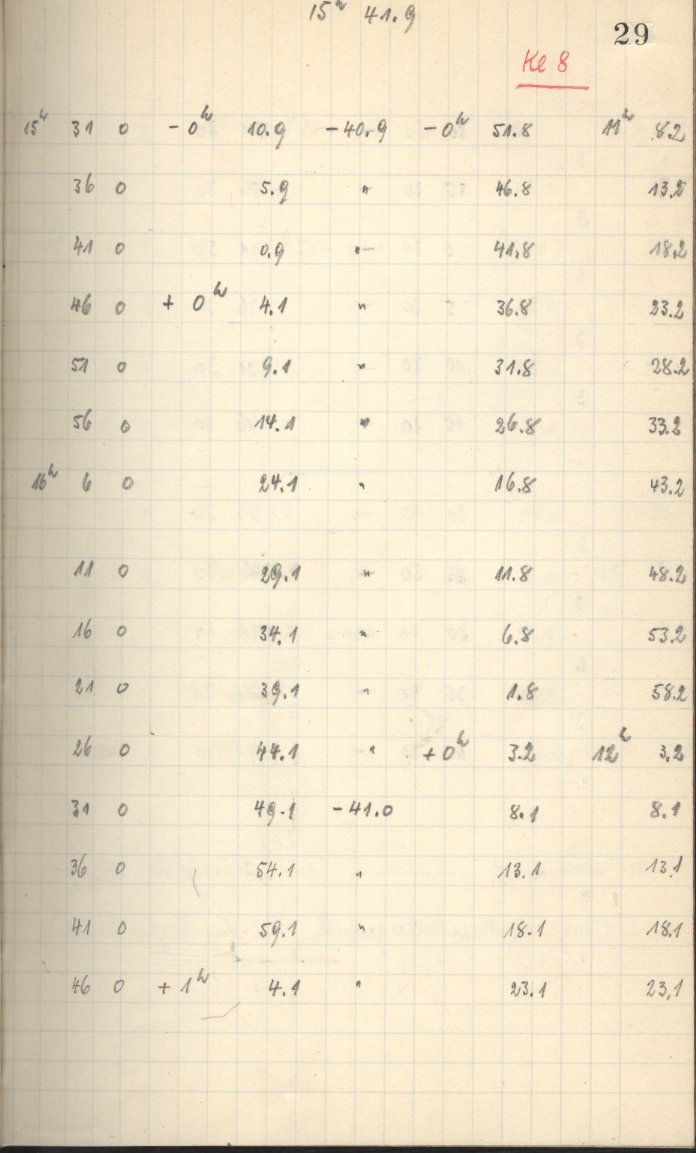 15h 41.9
29
Ke 8
15h 31 0 -0h 10.9 -40.9 -0h 51.8 11h 8.2
36 0 5.9 " 46.8 13.2
41 0 0.9 " 41.8 18.2
46 0 +0h 4.1 " 36.8 23.2
51 0 9.1 " 31.8 28.2
56 0 14.1 " 26.8 33.2
16h 6 0 24.1 " 16.8 43.2
11 0 29.1 " 11.8 48.2
16 0 34.1 " 6.8 53.2
21 0 39.1 " 1.8 58.2
26 0 44.1 " +0h 3.2 12h 3.2
31 0 49.1 -41.0 8.1 8.1
36 0 54.1 " 13.1 13.1
41 0 59.1 " 18.1 18.1
46 0 +1h 4.1 " 23.1 23,1